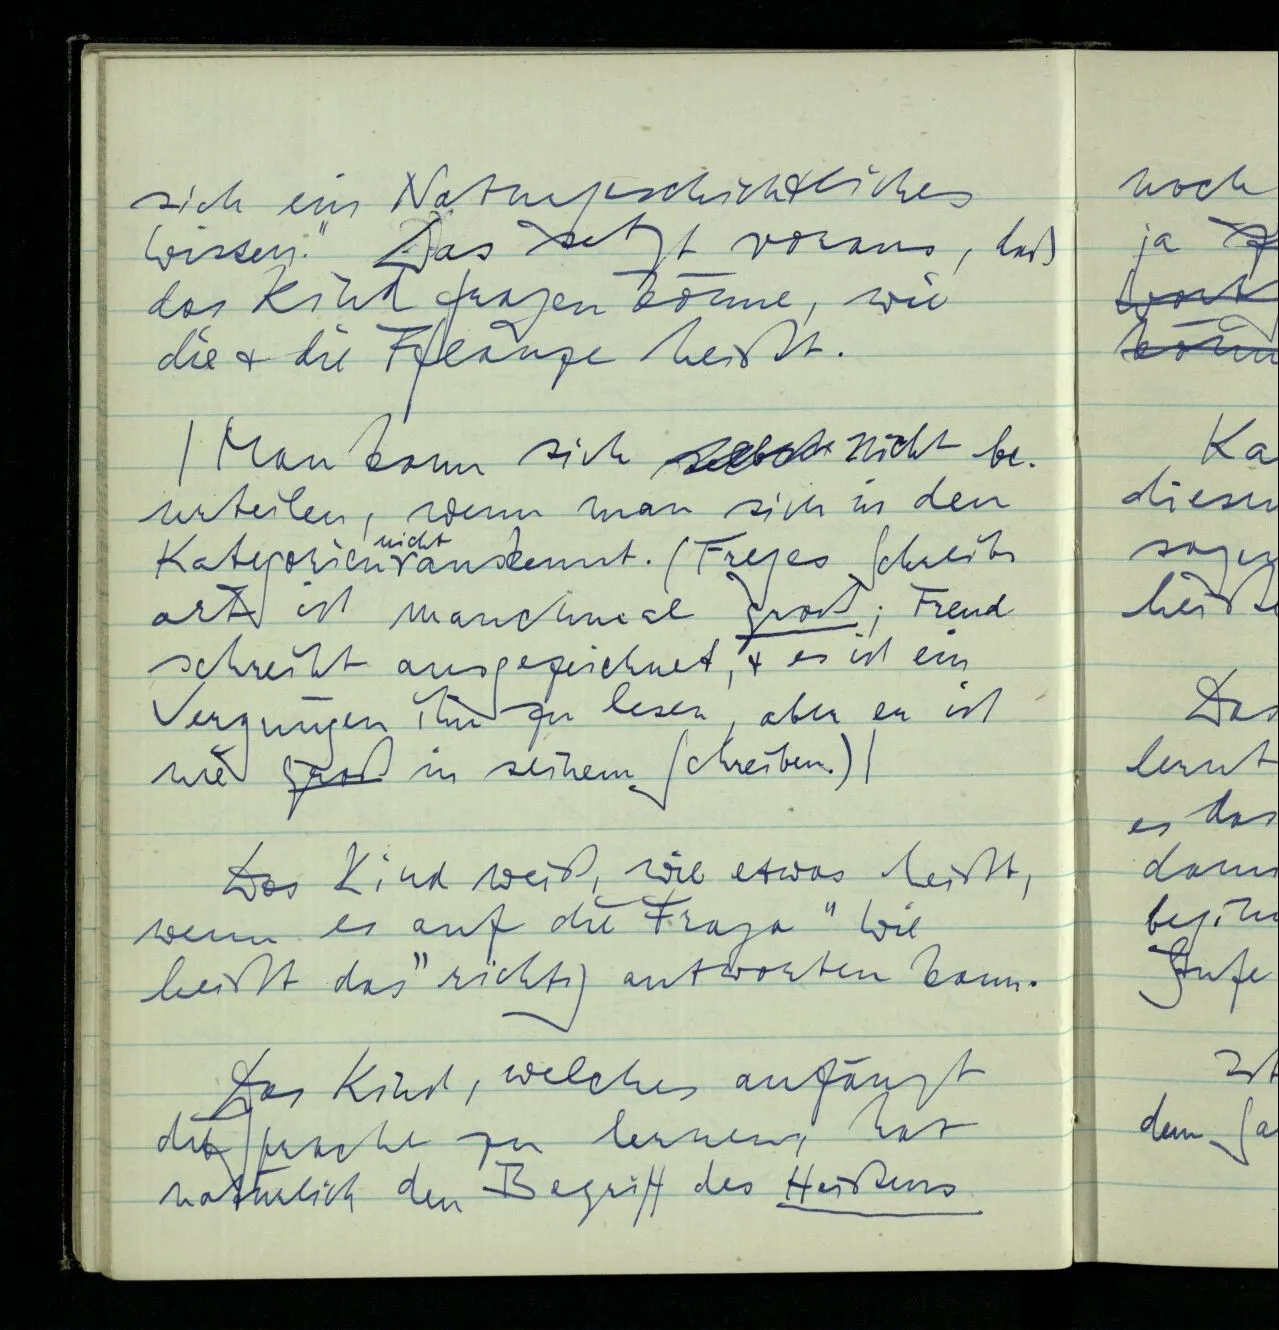 sich ein Naturgeschichtliches
Wissen." Das setzt voraus, daß
das Kind fragen könne, wie
die + die Pflanze heißt.
| Man kann sich selbst nicht be-
urteilen, wenn man sich in den
Kategorien nicht auskennt. (Freges Schreib-
art ist manchmal groß; Freud
schreibt ausgezeichnet, + es ist ein
Vergnügen ihn zu lesen, aber er ist
nie groß in seinem Schreiben.) |
Das Kind weiß, wie etwas heißt,
wenn es auf die Frage "Wie
heißt das" richtig antworten kann.
Das Kind, welches anfängt
die Sprache zu lernen, hat
natürlich den Begriff des Heißens
noch
ja
Ka
diesem
sagen
heiße
Das
lernt
es das
dann
Stufe
Ist
dem